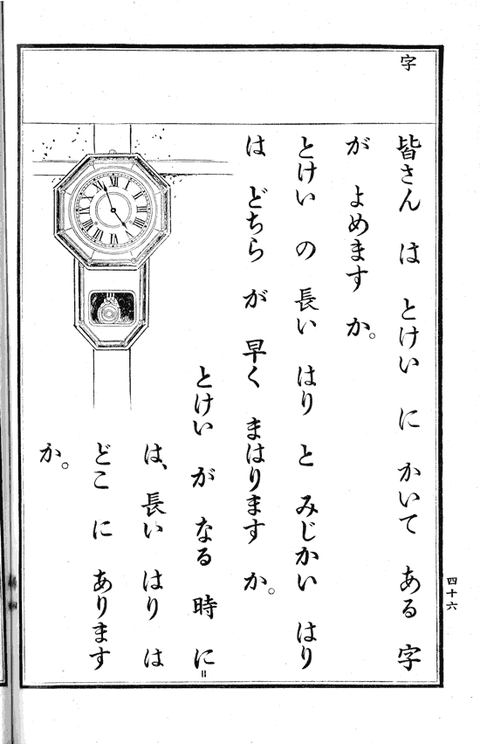 字
皆さん は とけい に かいて ある 字
が よめます か。
とけい の 長い はり と みじかい はり
は どちら が 早く まはります か。
とけい が なる 時 に
は、長い はり は
どこ に あります
か。
四十六